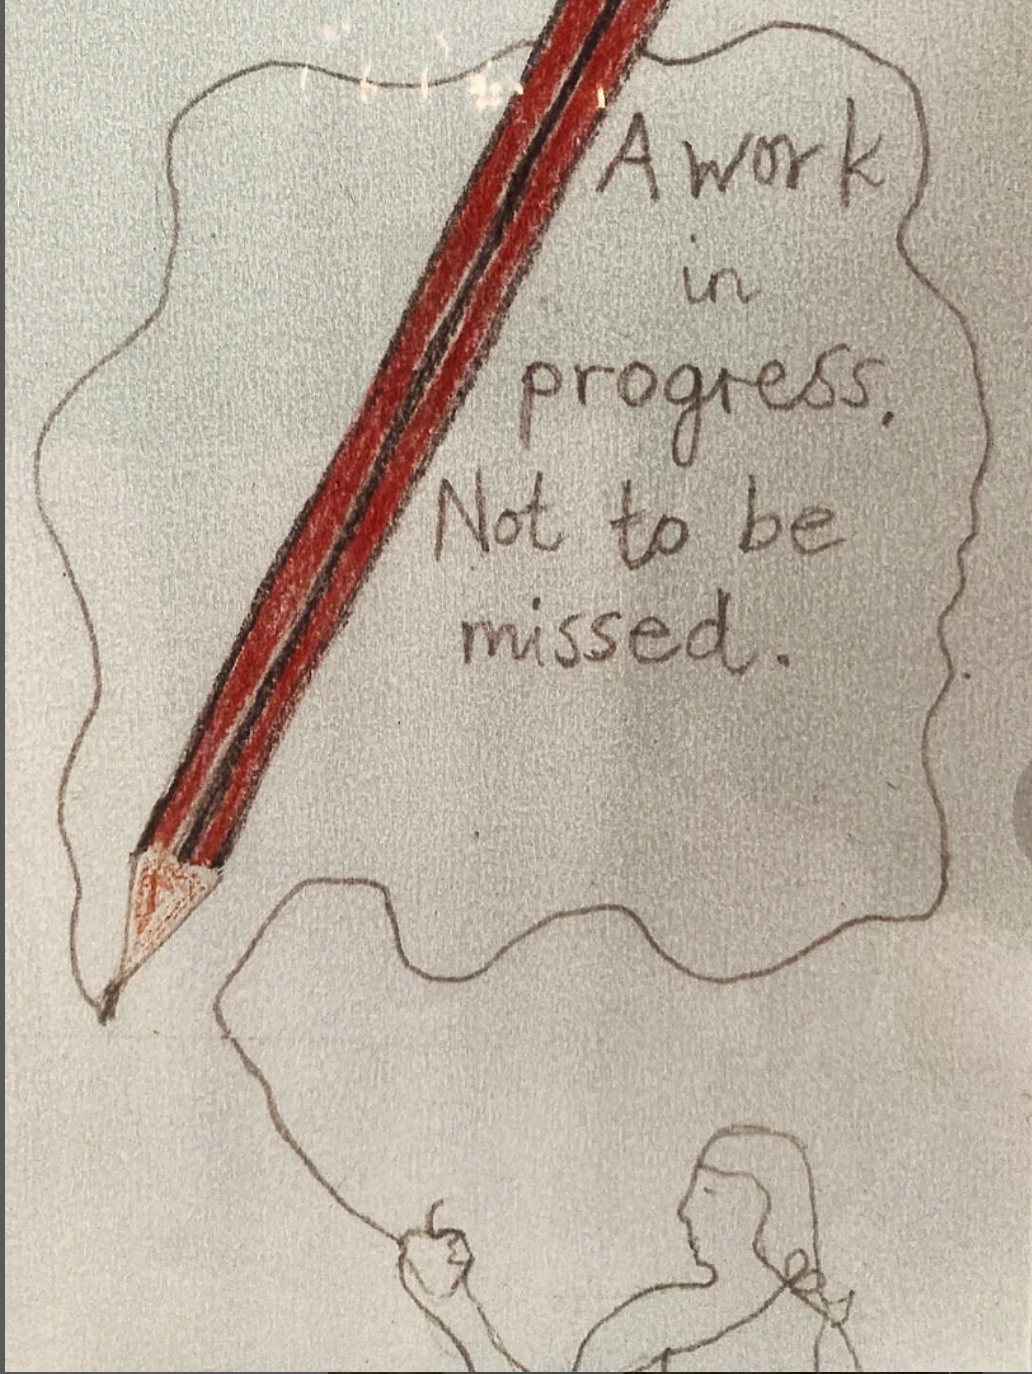 A work
in
progress.
Not to be
missed.